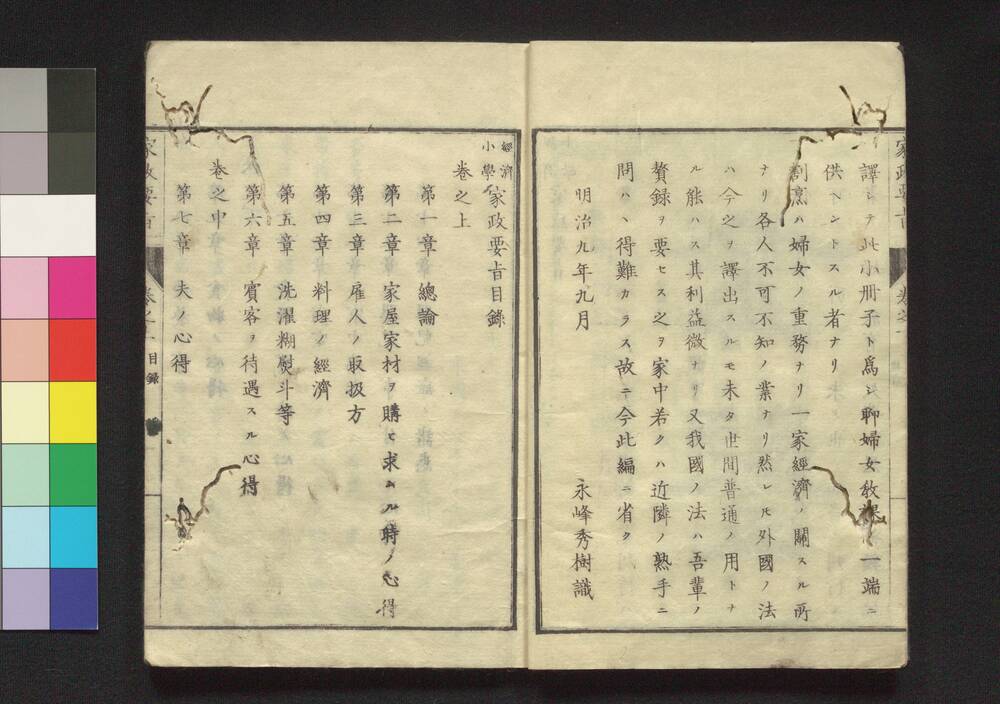 譯シテ此小冊子ト爲シ聊婦女敎課ノ一端ニ
供ヘントスル者ナリ
割烹ハ婦女ノ重務ナリ一家經濟ノ關スル所
ナリ各人不可不知ノ業ナリ然レ𪜈外國ノ法
ハ今之ヲ譯出スルモ未タ世間普通ノ用トナ
ル能ハス其利益微ナリ又我國ノ法ハ吾輩ノ
贅録ヲ要セス之ヲ家中若クハ近隣ノ熟手ニ
問ハヽ得難カラス故ニ今此編ニ省ク
明治九年九月
永峰秀樹識
經濟小學家政要旨目錄
卷之上
第一章 總論
第二章 家屋家材ヲ購ヒ求ムル時ノ心得
第三章 雇人ノ取扱方
第四章 料理ノ經濟
第五章 洗濯糊熨斗等
第六章 賓客ヲ待遇スル心得
卷之中
第七章 夫ノ心得
家政要旨 卷之 目録